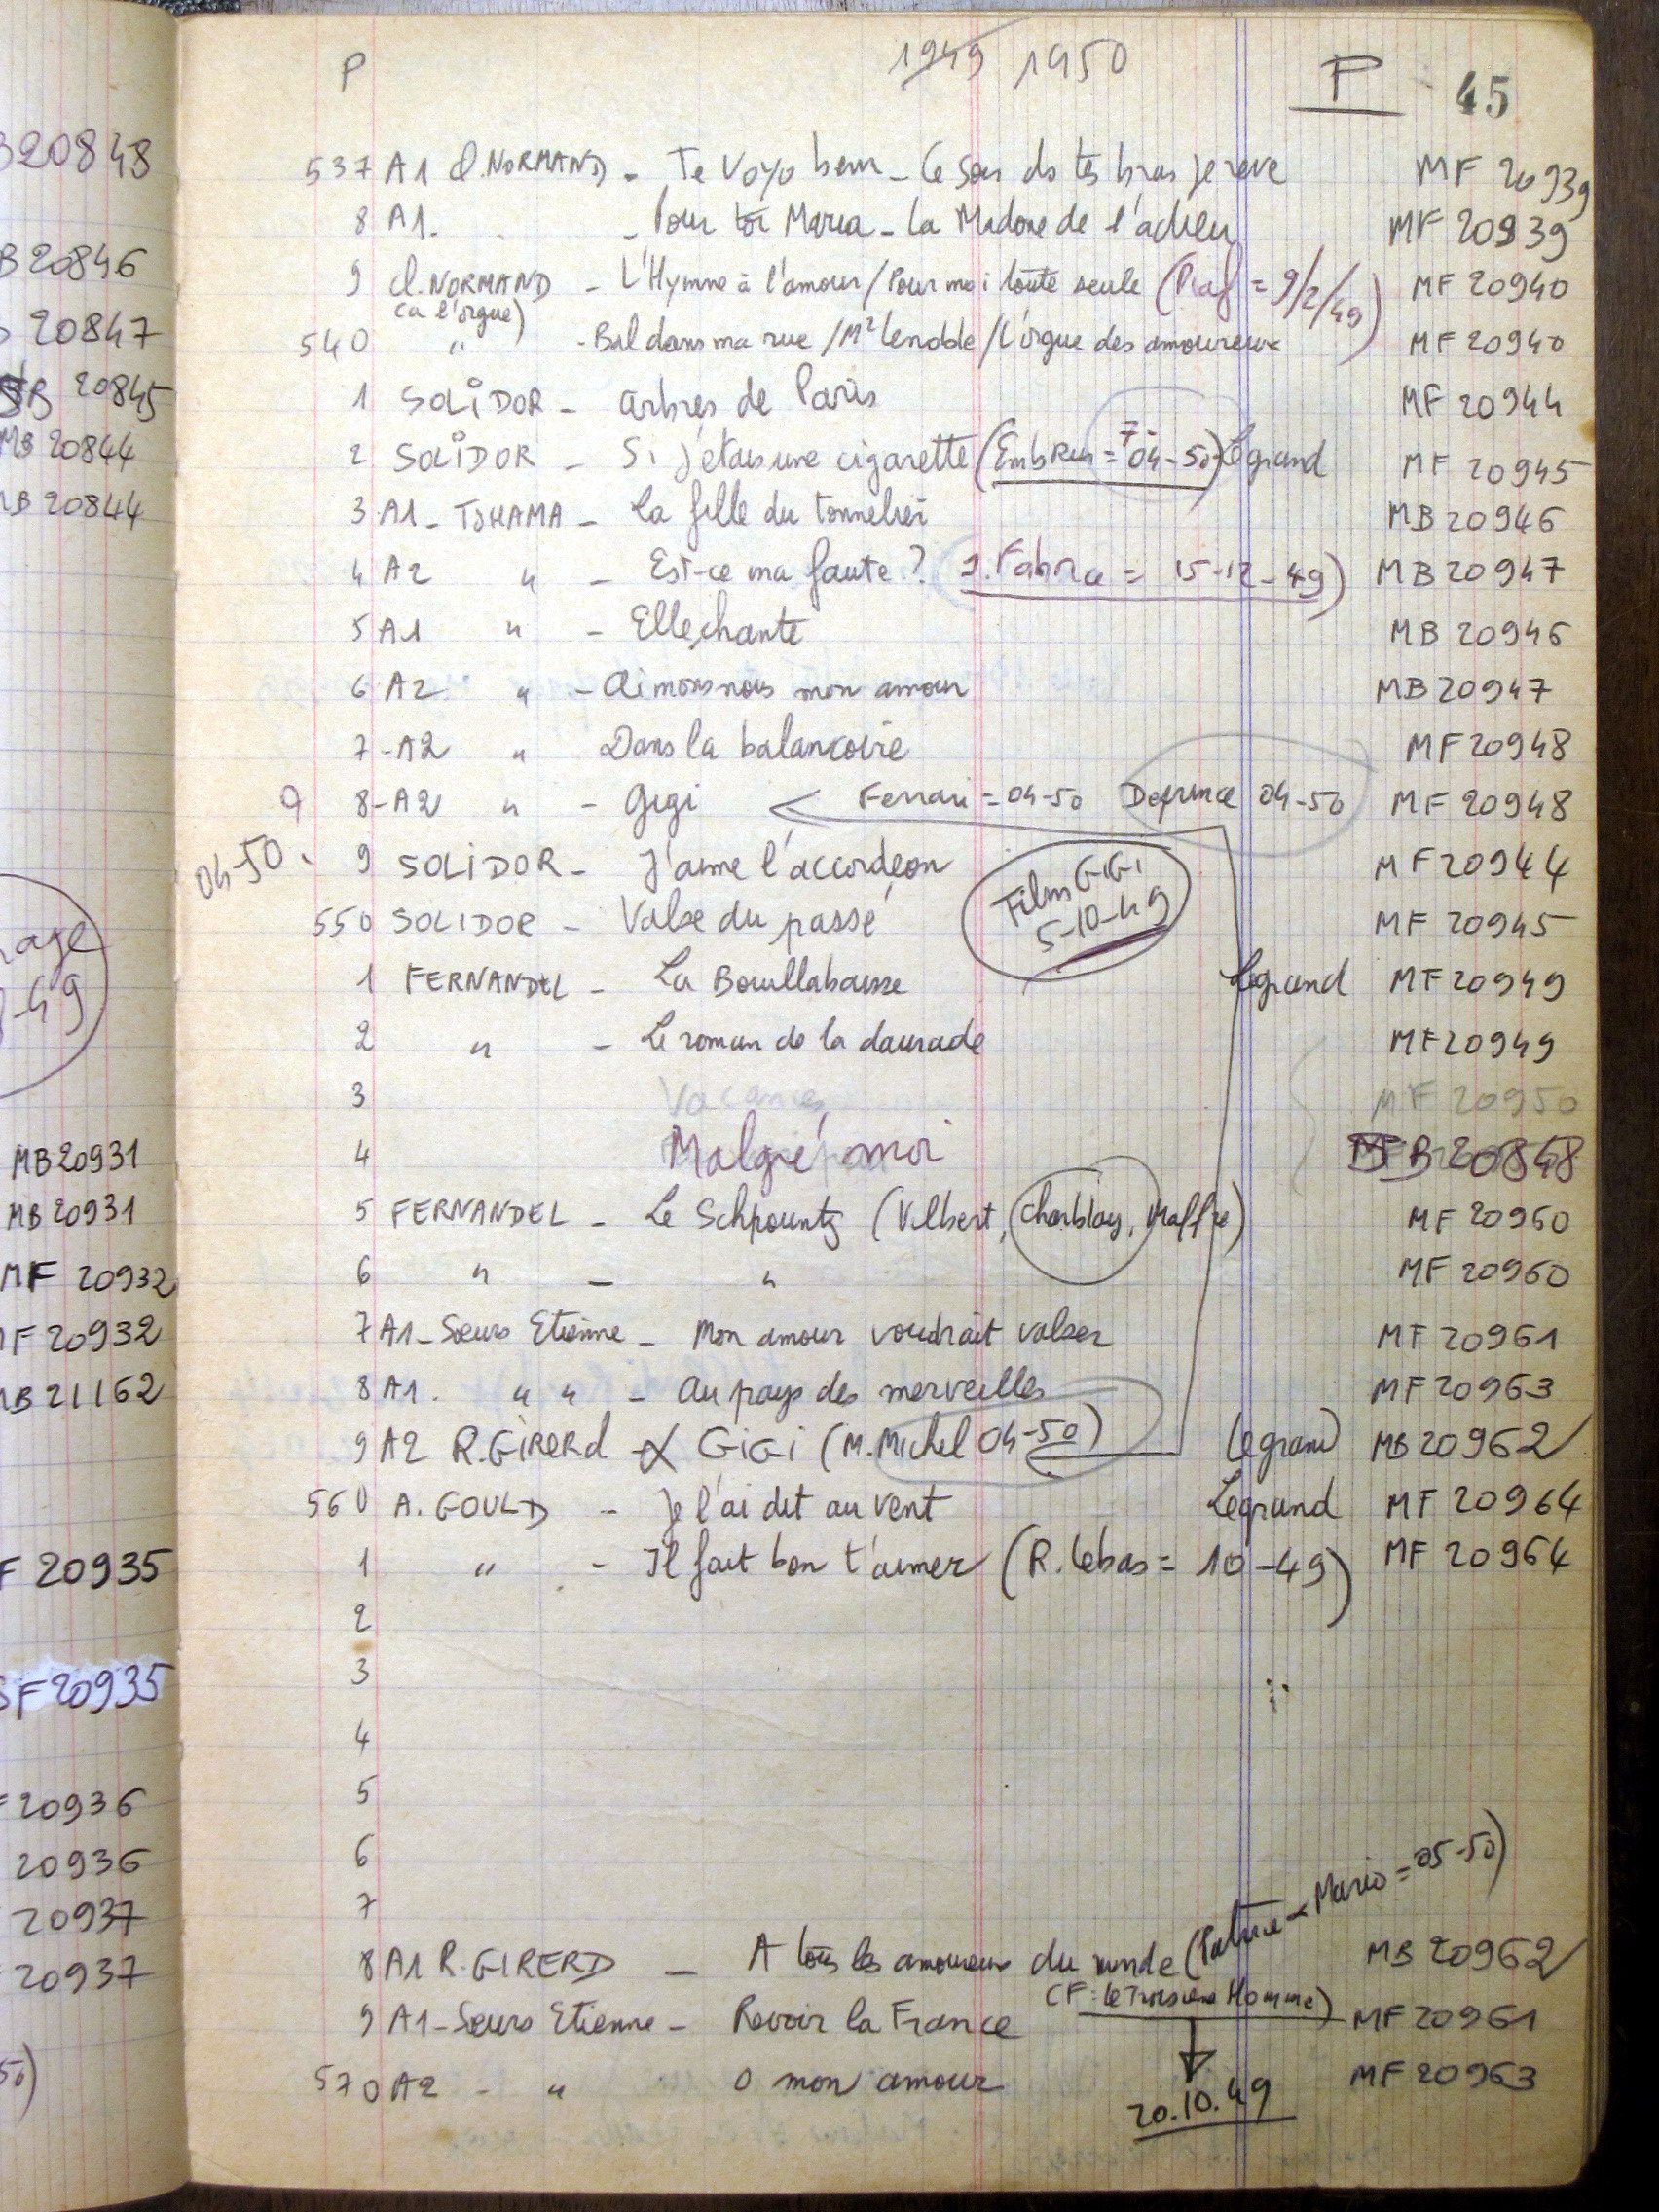 P 1949 1950 P 45
537 A1 Cl. NORMAND - Te Voyo benn - Ce soir ds tes bras je reve MF 20939
8 A1. - Pour toi Maria - La Madone de l'adieu MF 20939
9 Cl. NORMAND - L'Hymne à l'amour / Pour moi toute seule (Piaf = 9/2/49) MF 20940
(a l'orgue)
540 " - Bal dans ma rue / Mr Lenoble / L'orgue des amoureux MF 20940
1 SOLIDOR - Arbres de Paris MF 20944
2 SOLIDOR - Si j'étais une cigarette (Embrun = 7-04-50) Legrand MF 20945
3 A1 - TOHAMA - La fille du tonnelier MB 20946
4 A2 " - Est-ce ma faute? (J. Fabrice = 15-12-49) MB 20947
5 A1 " - Elle chante MB 20946
6 A2 " - Aimons nous mon amour MB 20947
7 - A2 " Dans la balancoire MF 20948
8 - A2 " - Gigi Ferrari = 04-50 Deprince 04-50 MF 20948
04-50.
9 SOLIDOR - J'aime l'accordeon MF 20944
Film GIGI
5-10-49
550 SOLIDOR - Valse du passé MF 20945
1 FERNANDEL - La Bouillabaisse Legrand MF 20949
2 " - Le roman de la daurade MF 20949
3 Vacances MF 20950
4 Malgré moi B 20848
5 FERNANDEL - Le Schpountz (Vilbert, Charblay, Maffre) MF 20960
6 " - " MF 20960
7 A1 - Sœurs Etienne - Mon amour voudrait valser MF 20961
8 A1. " " - Au pays des merveilles MF 20963
9 A2 R. GIRERD - GIGI (M. Michel 04-50) Legrand MB 20962
560 A. GOULD - Je l'ai dit au vent Legrand MF 20964
1 " - Il fait bon t'aimer (R. Lebas = 10-49) MF 20964
2
3
4
5
6
7
8 A1 R. GIRERD - A tous les amoureux du monde (Patrice - Mario = 05-50) MB 20962
(F: Le Troisieme Homme)
9 A1 - Sœurs Etienne - Revoir la France MF 20961
570 A2 - " O mon amour MF 20963
20.10.49
20848
B 20846
20847
B 20845
MB 20844
B 20844
-49
MB 20931
MB 20931
MF 20932
F 20932
B 21162
F 20935
F 20935
20936
20936
20937
20937